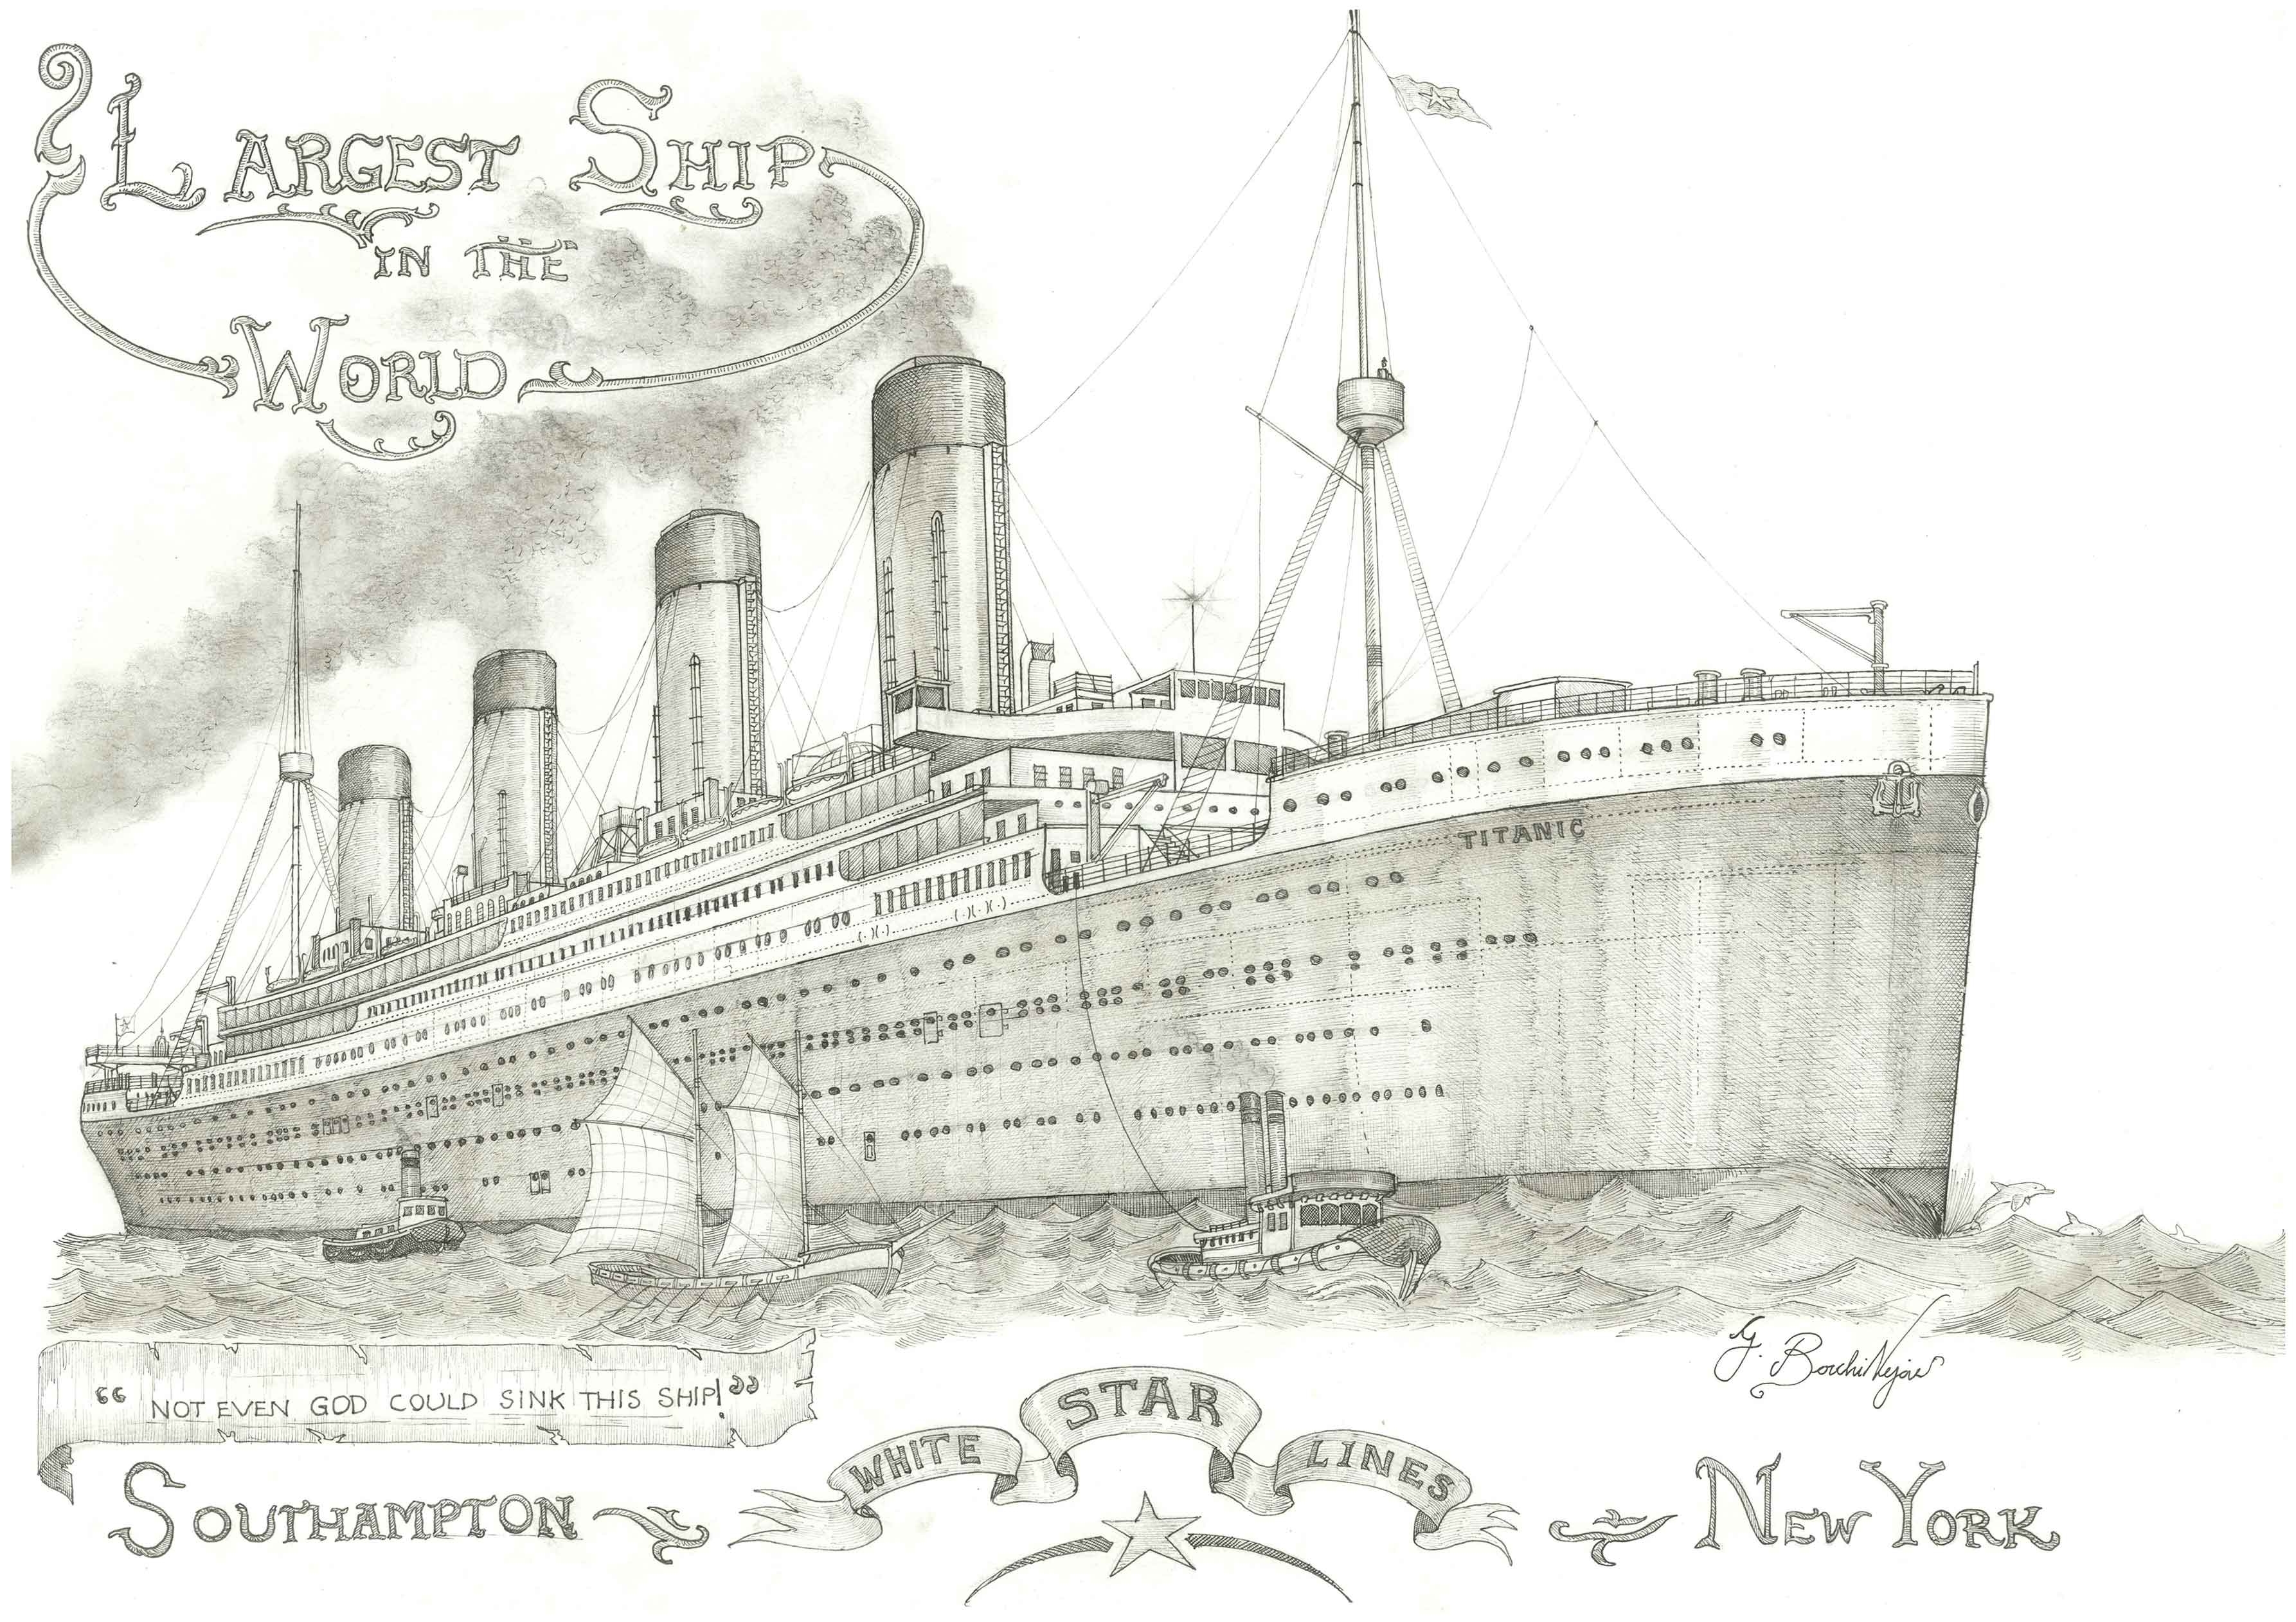 LARGEST SHIP
IN THE
WORLD
TITANIC
"NOT EVEN GOD COULD SINK THIS SHIP!"
WHITE STAR LINES
SOUTHAMPTON
NEW YORK